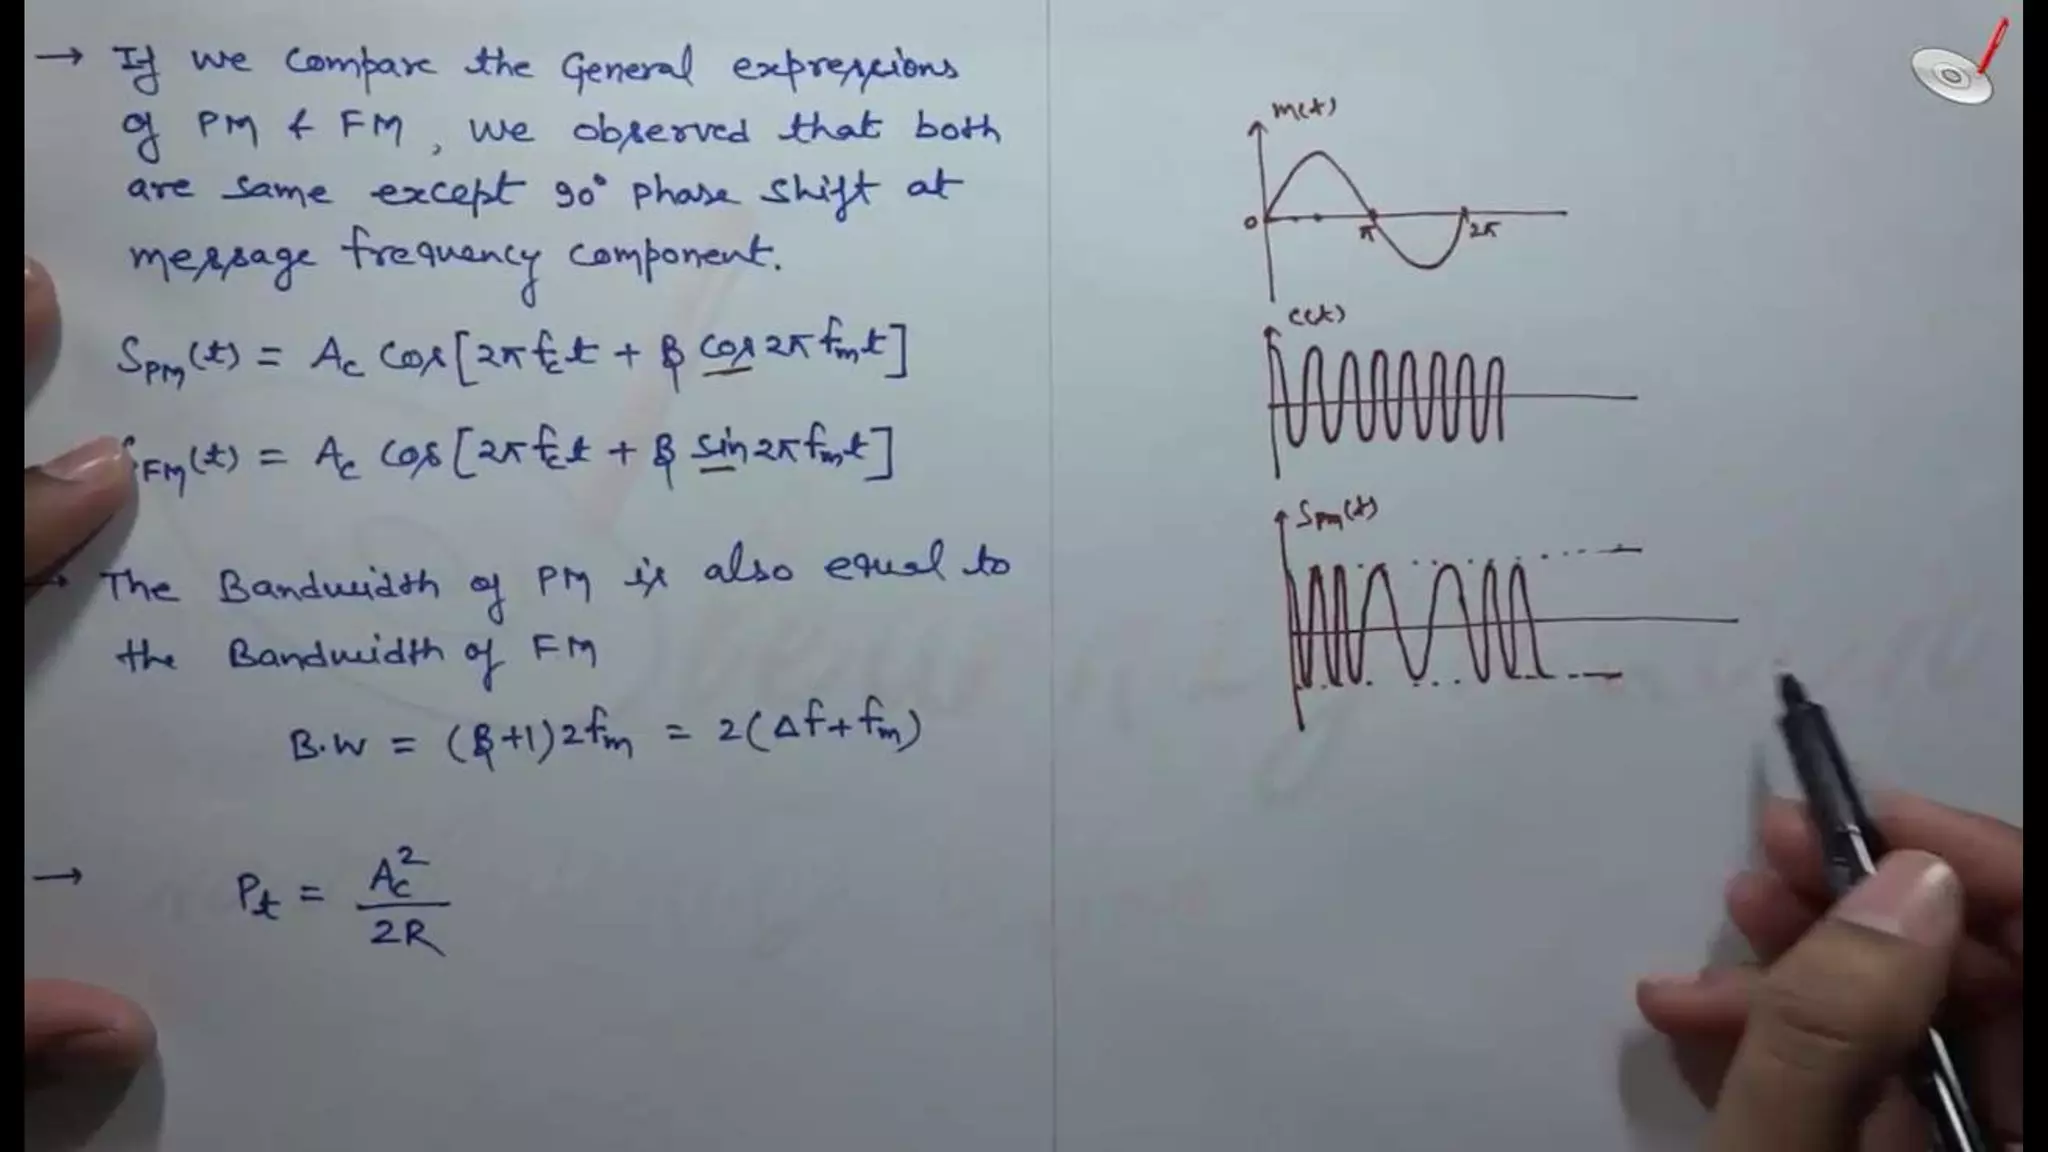 → If we compare the General expressions
of PM & FM, we observed that both
are same except 90° phase shift at
message frequency component.
S_PM(t) = A_c cos[2π f_c t + β cos 2π f_m t]
S_FM(t) = A_c cos[2π f_c t + β sin 2π f_m t]
→ The Bandwidth of PM is also equal to
the Bandwidth of FM
B.W = (β+1)2f_m = 2(Δf+f_m)
→ P_t = A_c²/2R
m(t)
0 π 2π
c(t)
S_PM(t)